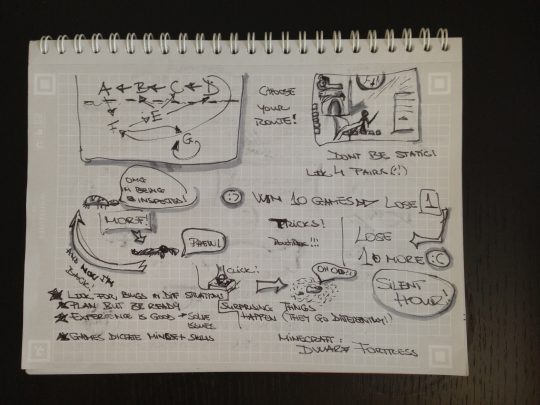 A B C D
F E
G
CHOOSE
YOUR
ROUTE!
DONT BE STATIC!
4 PAIRS (!)
OMG
I'M BEING
INSPECTED!
WIN 10 GAMES LOSE 1
MORE!
TRICKS!
LOSE
10 MORE :C
PHEW!
AND NOW I'M
BACK!
CLICK!
OH OH!
SILENT
HOUR!
LOOK FOR BUGS IN DIFF SITUATIONS
PLAN BUT BE READY
EXPERIENCE IS GOOD → SOLVE
ISSUES
SURPRISING THINGS
HAPPEN (THEY GO DIFFERENTLY!)
GAMES DICTATE MINDSET + SKILLS
MINECRAFT:
DWARF FORTRESS